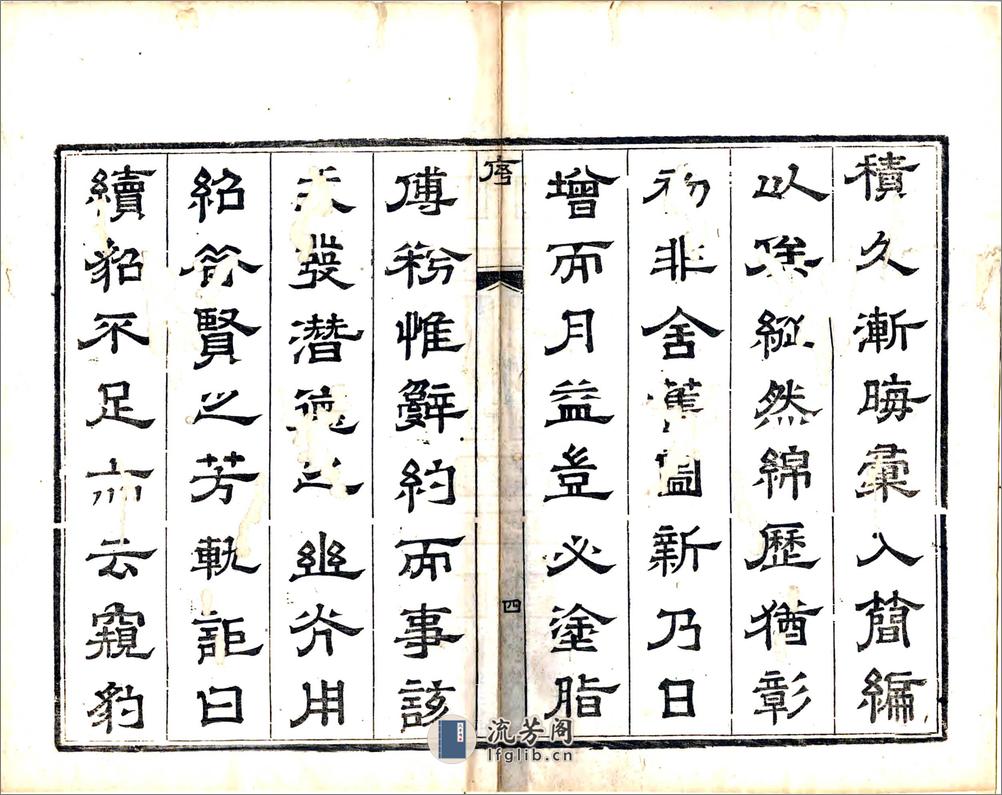 積久漸晦彙入簡編
以俟縱然綿歷猶彰
初非舍舊圖新乃日
增而月益豈必塗脂
序
四
傅粉惟辭約而事該
發潛德之幽光用
紹前賢之芳軌詎曰
續貂不足亦云窺豹
流芳阁
lfglib.cn